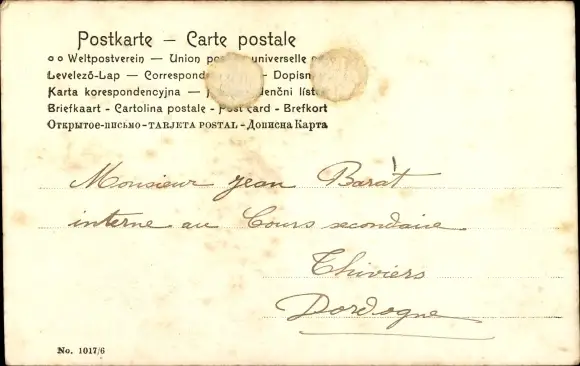 Postkarte – Carte postale
Weltpostverein – Union universelle
Levelező-Lap – – Dopisn
Karta korespondencyjna –
Briefkaart - Cartolina postale - Post card - Brefkort
Открытое-письмо-TARJETA POSTAL-Дописна Карта
Monsieur Jean Barat
interne au Cours secondaire
Thiviers
Dordogne
No. 1017/6